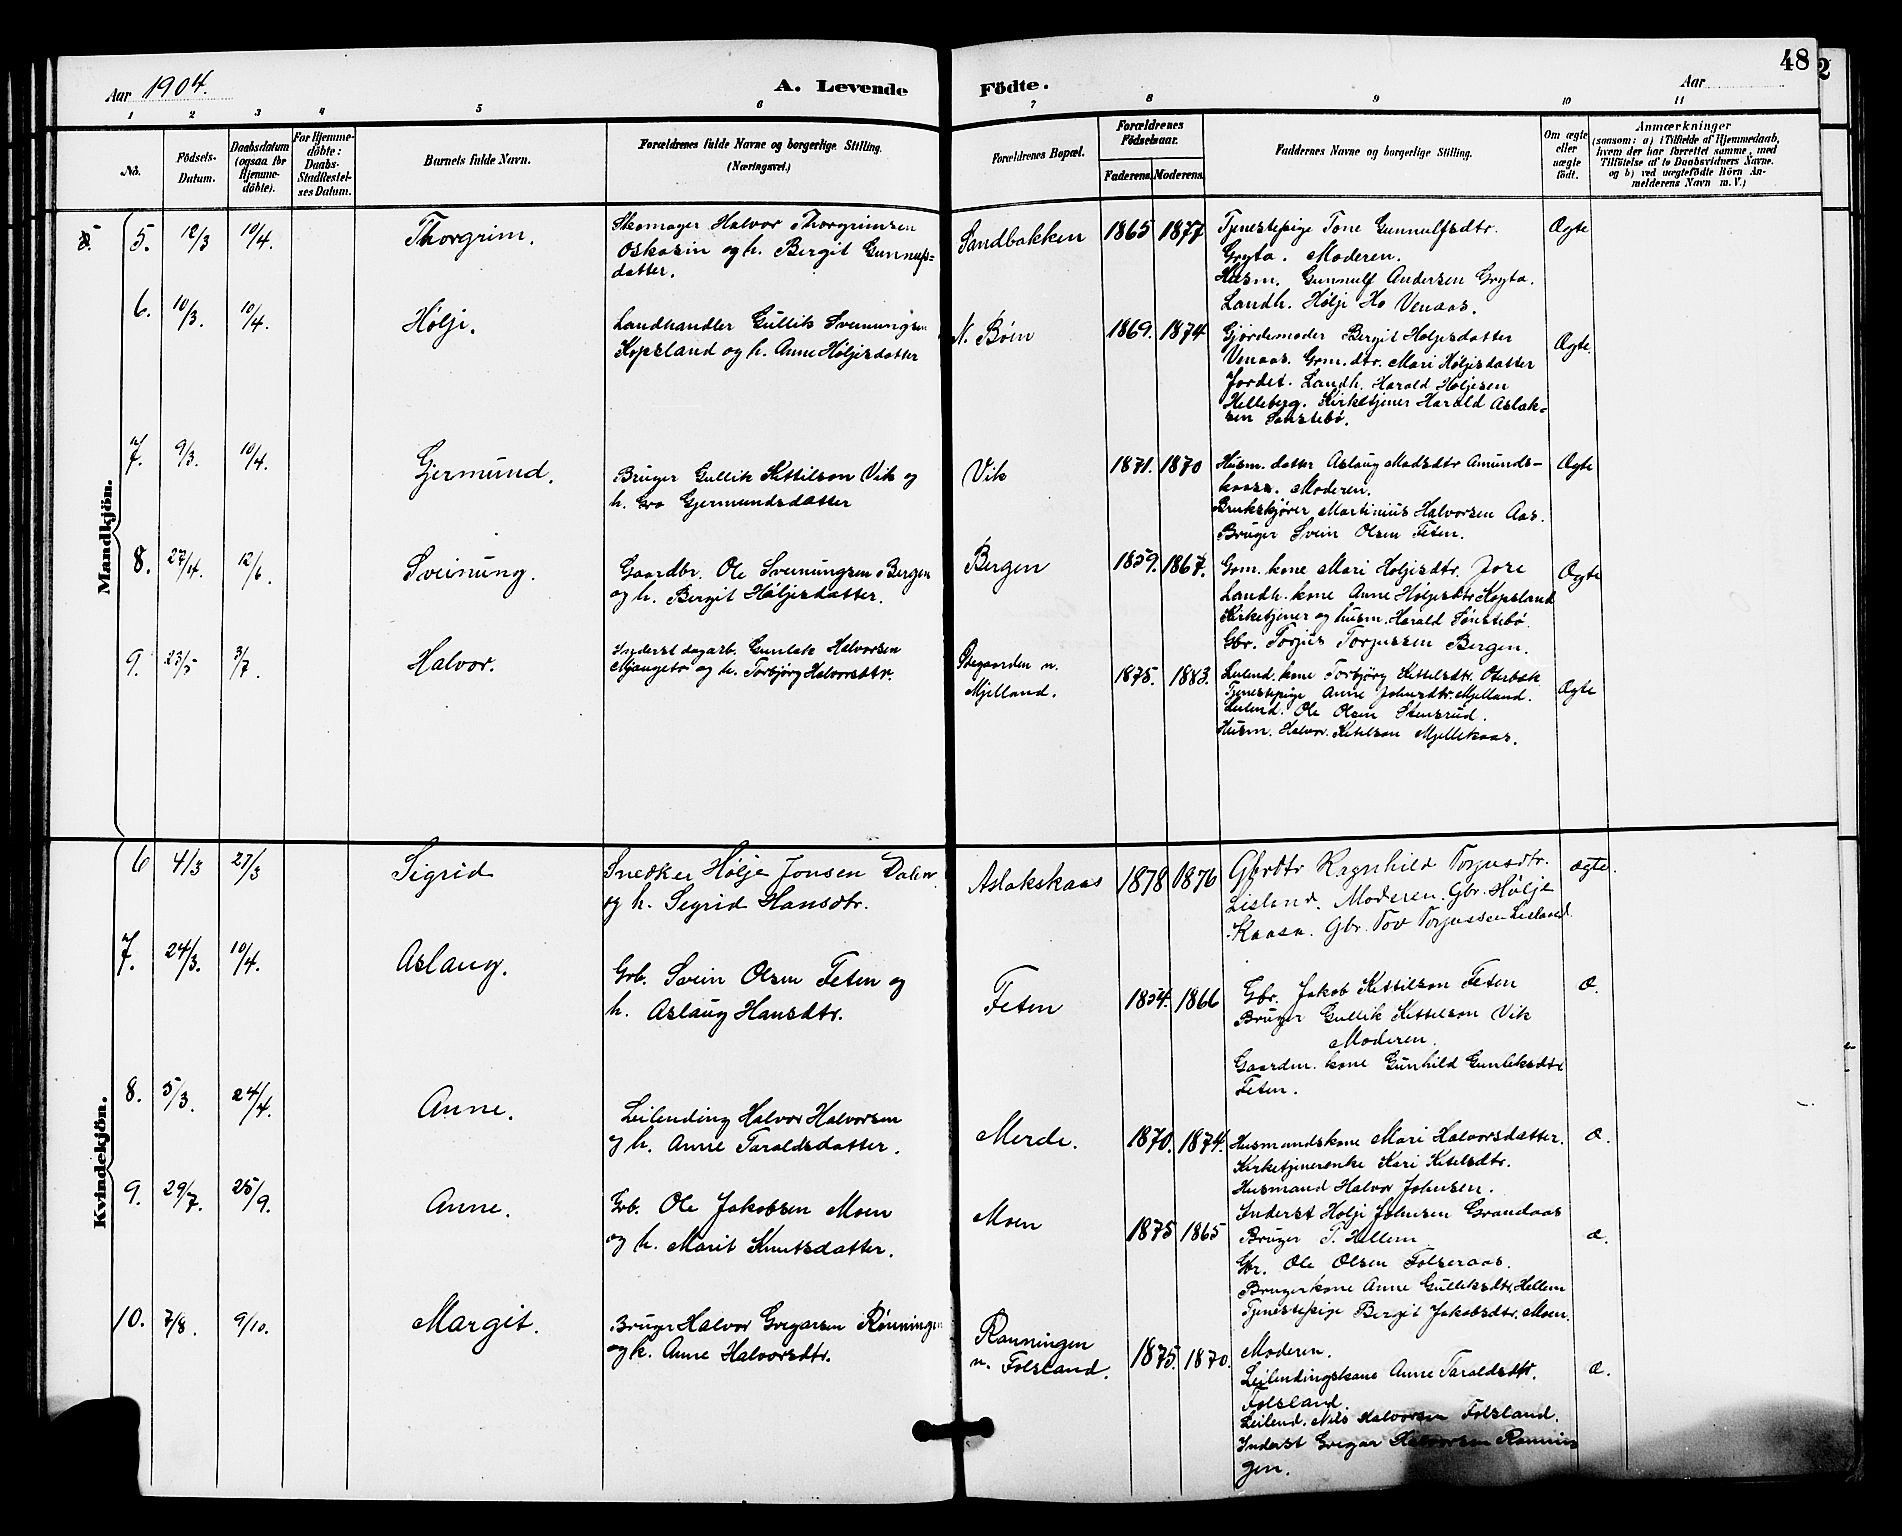 Aar 1904.
A. Levende
Födte.
Aar
48
2
1 2 3 4 5 6 7 8 9 10 11
No.
Födsels-
Datum.
Daabsdatum
(ogsaa for
Hjemme-
döbte).
For Hjemme-
döbte:
Daabs-
Stadfæstel-
ses Datum.
Barnets fulde Navn.
Forældrenes fulde Navne og borgerlige Stilling.
(Næringsvei.)
Forældrenes Bopæl.
Forældrenes
Födselsaar.
Faderens. Moderens.
Faddernes Navne og borgerlige Stilling.
Om ægte
eller
uægte
födt.
Anmærkninger
(saasom: a) i Tilfælde af Hjemmedaab,
hvem der har forrettet samme, med
Tilföielse af to Daabsvidners Navne.
og b) ved uægtefödte Börn An-
melderens Navn m. V.)
Mandkjön.
5. 12/3 10/4. Thorgrim.
Skomager Halvor Thorgrimsen
Oskasin og h. Bergit Gunnufs-
datter.
Sandbakken 1865 1877
Tjenestepige Tone Gunnulfsdtr.
Gryta. Moderen.
Husm. Gunnulf Andersen Gryta.
Landh. Hølje Ho Venaas.
Ægte
6. 10/3. 10/4. Hølje.
Landhandler Gullik Sveinungsen
Kopsland og h. Anne Høljesdatter
N. Bøen 1869. 1874
Gjordemoder Bergit Høljesdatter
Venaas. Grm. dtr. Mari Høljesdatter
Jordet. Landh. Harald Høljesen
Helleberg. Kirketjener Harald Aslak-
sen Sønstebø.
Ægte
7. 9/3. 10/4. Gjermund.
Bruger Gullik Kittilson Vik og
h. Gro Gjermundsdatter
Vik 1871. 1870
Husm. datter Aslaug Madsdtr Amunds-
kaasa. Moderen.
Brukskjører Martinius Halvorsen Aas.
Bruger Svein Olsen Feten.
Ægte
8. 27/4. 12/6. Sveinung.
Gaardbr. Ole Sveinungsen Bergen
og h. Bergit Høljesdatter.
Bergen 1859. 1867.
Grm. kone Mari Holjesdtr. Jore
Landh. kone Anne Høljesdtr Kopsland
Kirketjener og husm. Harald Sønstebø.
Gbr. Torjus Torjussen Bergen.
Ægte
9. 23/5 3/7. Halvor.
Inderst dagarb. Gunlek Halvorsen
Mjaugetr og h. Torbjørg Halvorsdtr.
Øegaarden n.
Mjelland. 1875. 1883.
Leilend. kone Torbjørg Kittelsdtr. Oterbæk
Tjenestepige Anne Johnsdtr. Mjelland.
Leilend. Ole Olsen Stensrud.
Husm. Halvor. Ketelson Mjellekaas.
Ægte
Kvindekjön.
6 4/3 27/3 Sigrid
Snedker Hølje Jonsen Dalen
og h. Sigrid Hansdtr.
Aslakskaas 1878 1876
Gbrdtr Ragnhild Torjusdtr.
Lislend. Moderen. Gbr. Hølje
Kaasa. Gbr. Tov Torjussen Lisland.
ægte.
7. 24/3. 10/4. Aslaug.
Grb. Svein Olsen Feten og
h. Aslaug Hansdtr.
Feten 1854. 1866
Gbr. Jakob Kittilson Feten
Bruger Gullik Kittilson Vik
Moderen.
Gaardm. kone Gunhild Gunleksdtr
Feten.
Æ.
8. 5/3. 24/4. Anne.
Leilending Halvor Halvorsen
og h. Anne Taraldsdatter.
Merde. 1870. 1874.
Husmandskone Mari Halvorsdatter.
Kirketjenerenke Kari Ketelsdtr.
Husmand Halvor Johnsen.
Inderst Holje Johnsen Grandaas
Æ.
9. 29/7. 25/9. Anne.
Grb. Ole Jakobsen Moen
og h. Marit Knutsdatter.
Moen 1875 1865
Bruger T. Hellem
Gbr. Ole Olsen Folseraas.
Brugerkone Anne Gulleksdtr. Hellem
Tjenestepige Bergit Jakobsdtr. Moen.
Æ.
10. 7/8. 9/10. Margit.
Bruger Halvor Gregarsen Rønningen
og h. Anne Halvorsdtr.
Rønningen
n. Folsland. 1875. 1870.
Moderen.
Leilendingskone Anne Taraldsdtr.
Folsland.
Leilend. Nils Halvorsen Folsland.
Inderst Gregar Halvorsen Rønnin
gen.
Æ.